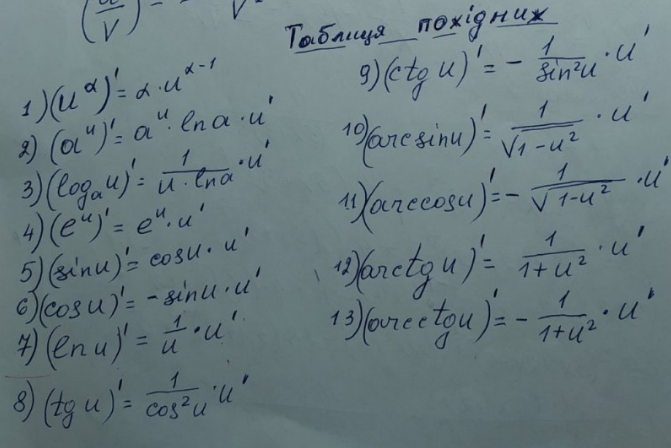 (u/v)' = 
Таблиця похідних
1) (u^α)' = α · u^(α-1)
2) (a^u)' = a^u · ln a · u'
3) (log_a u)' = 1/(u · ln a) · u'
4) (e^u)' = e^u · u'
5) (sin u)' = cos u · u'
6) (cos u)' = - sin u · u'
7) (ln u)' = 1/u · u'
8) (tg u)' = 1/cos²u · u'
9) (ctg u)' = - 1/sin²u · u'
10) (arcsin u)' = 1/√(1-u²) · u'
11) (arccos u)' = - 1/√(1-u²) · u'
12) (arctg u)' = 1/(1+u²) · u'
13) (arcctg u)' = - 1/(1+u²) · u'